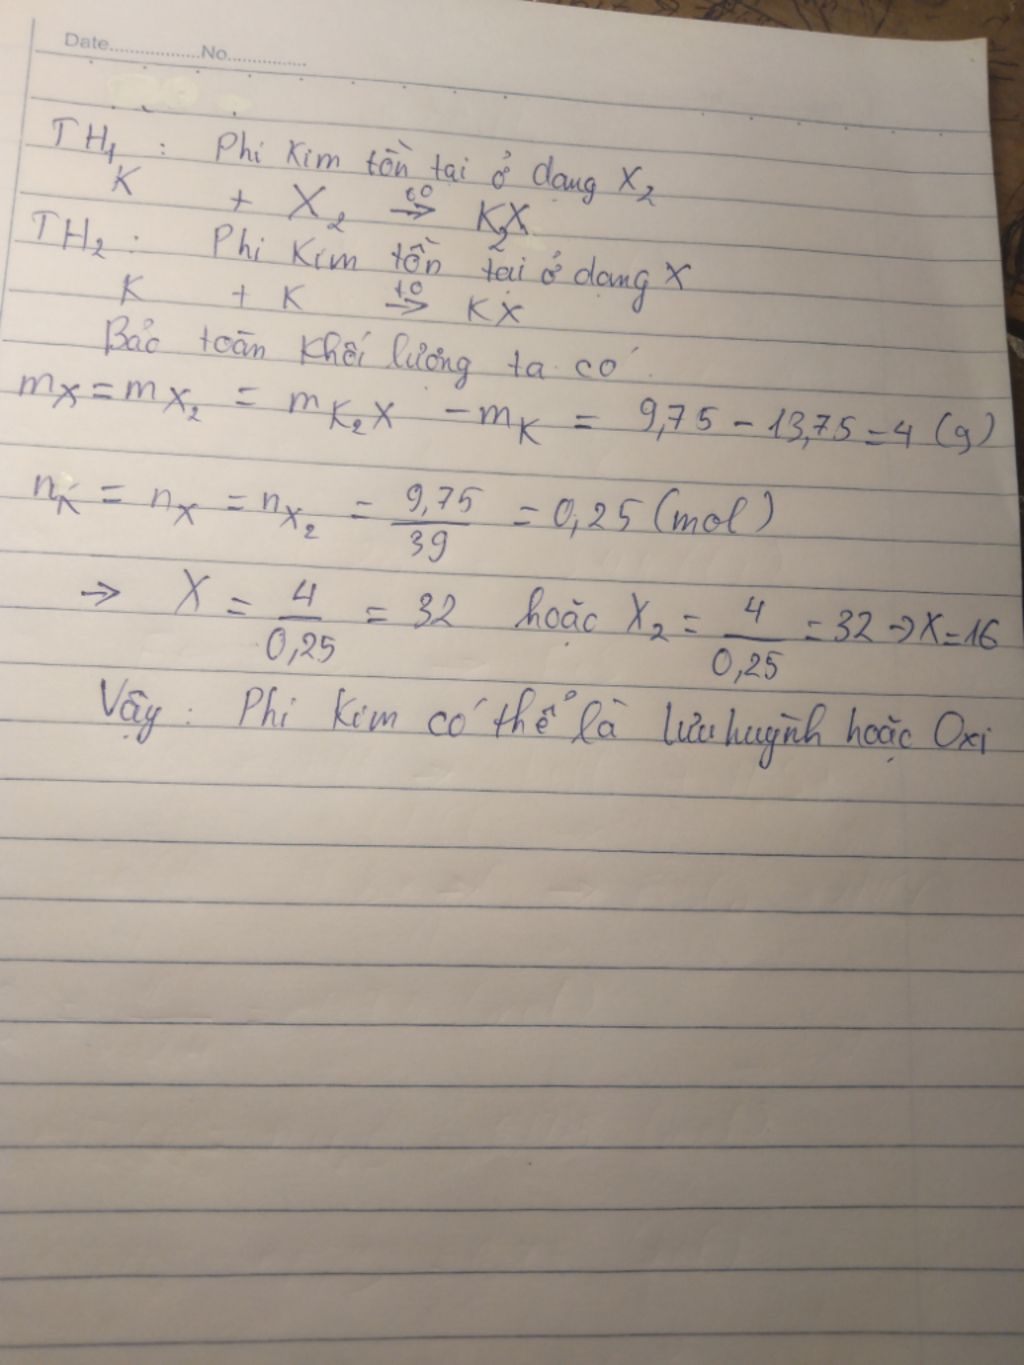 Date..................No...............
TH₁ : Phi Kim tồn tại ở dạng X₂
K + X₂ →(t⁰) K₂X
TH₂ : Phi Kim tồn tại ở dạng X
K + K →(t⁰) KX
Bảo toàn khối lượng ta có
mX = mX₂ = mK₂X - mK = 9,75 - 13,75 = 4 (g)
nK = nX = nX₂ = 9,75/39 = 0,25 (mol)
→ X = 4/0,25 = 32 hoặc X₂ = 4/0,25 = 32 → X = 16
Vậy : Phi Kim có thể là lưu huỳnh hoặc Oxi